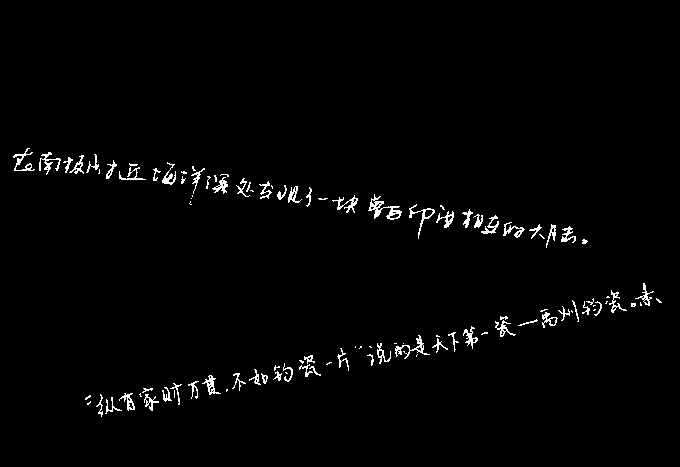 在南极附近海洋深处发现了一块与印度相互的大陆。
“纵有家财万贯,不如钧瓷一片”说的是天下第一瓷一禹州钧瓷。素